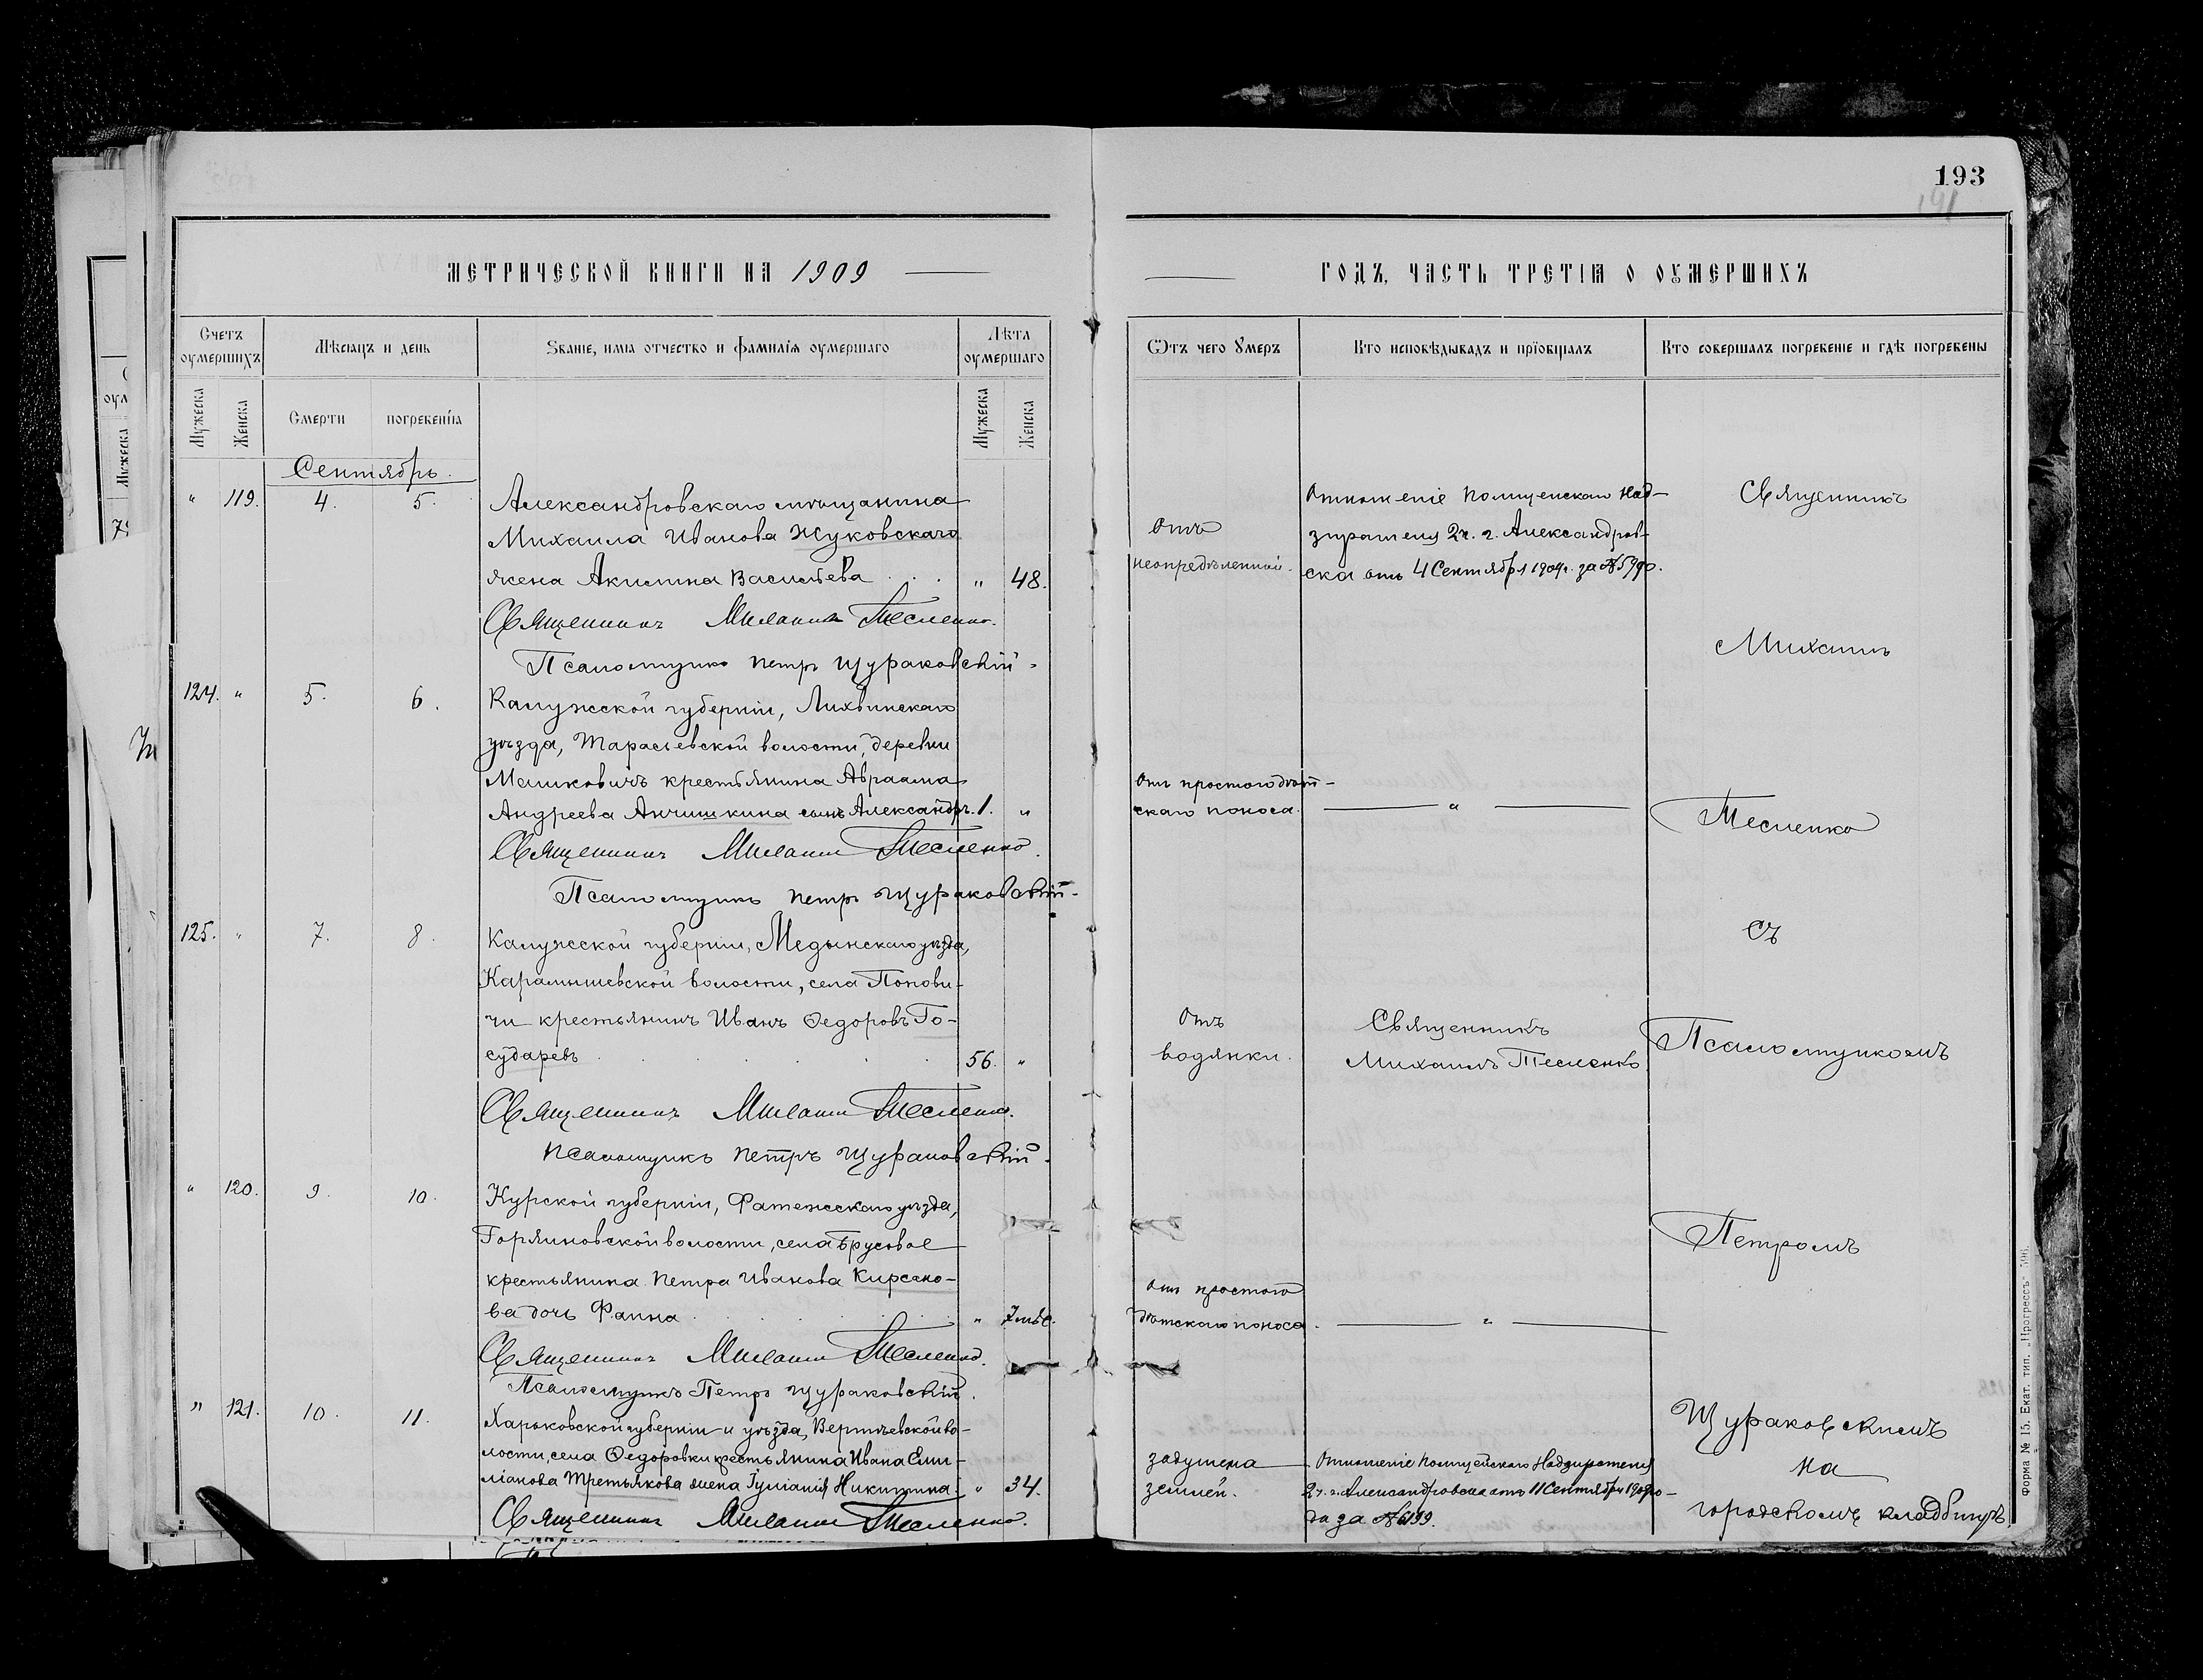 193
191
МЕТРИЧЕСКОЙ КНИГИ НА 1909
ГОДЪ, ЧАСТЬ ТРЕТІЯ О ОУМЕРШИХЪ
Счетъ оумершихъ
Мѣсяцъ и день
Званіе, имя отчество и фамилія оумершаго
Лѣта оумершаго
Ѿтъ чего Умеръ
Кто исповѣдывалъ и пріобщалъ
Кто совершалъ погребеніе и гдѣ погребены
Мужеска
Женска
Смерти
погребенія
Мужеска
Женска
Сентябрь.
" 119. 4. 5.
Александровскаго мѣщанина
Михаила Иванова Жуковскаго
жена Акилина Васильева . . . " 48.
отъ
неопредѣленной.
Отношеніе Полицейскаго Над-
зирателя 2ч. г. Александров-
ска отъ 4 Сентября 1909г. за №5990.
Священникъ Михаилъ Тесленко.
Псаломщикъ Петръ Щураковскій.
124. " 5. 6.
Калужской губерніи, Лихвинскаго
уѣзда, Тарасьевской волости, деревни
Машковичъ крестьянина Авраама
Андреева Анчишкина сынъ Александръ. 1. "
отъ простого дѣт-
скаго поноса.
"
Священникъ Михаилъ Тесленко.
Псаломщикъ Петръ Щураковскій.
125. " 7. 8.
Калужской губерніи, Медынскаго уѣзда,
Карамышевской волости, села Попови-
чи крестьянинъ Иванъ Ѳедоровъ Го-
сударевъ . . . . . 56. "
отъ
водянки.
Священникъ
Михаилъ Тесленко
Священникъ Михаилъ Тесленко.
Псаломщикъ Петръ Щураковскій.
" 120. 9. 10.
Курской губерніи, Фатежскаго уѣзда,
Горяиновской волости, села Брусовое
крестьянина Петра Иванова Кирсано-
ва дочь Фаина . . . . " 7 мѣс.
отъ простого
дѣтскаго поноса.
"
Священникъ Михаилъ Тесленко.
Псаломщикъ Петръ Щураковскій.
" 121. 10. 11.
Харьковской губерніи и уѣзда, во-
лости, села Ѳедоровки крестьянина Ивана Еми-
ліанова Третьякова жена Іуліанія Никитина. " 34.
задушена
землей.
Отношеніе Полицейскаго Надзирателя
2 ч. г. Александровска отъ 11 Сентября 1909го-
да за №6199.
Священникъ Михаилъ Тесленко.
Священникъ
Михаилъ
Тесленко
съ
Псаломщикомъ
Петромъ
Щураковскимъ
на
городскомъ кладбищѣ.
Форма № 15. Екат. тип. „Прогрессъ"